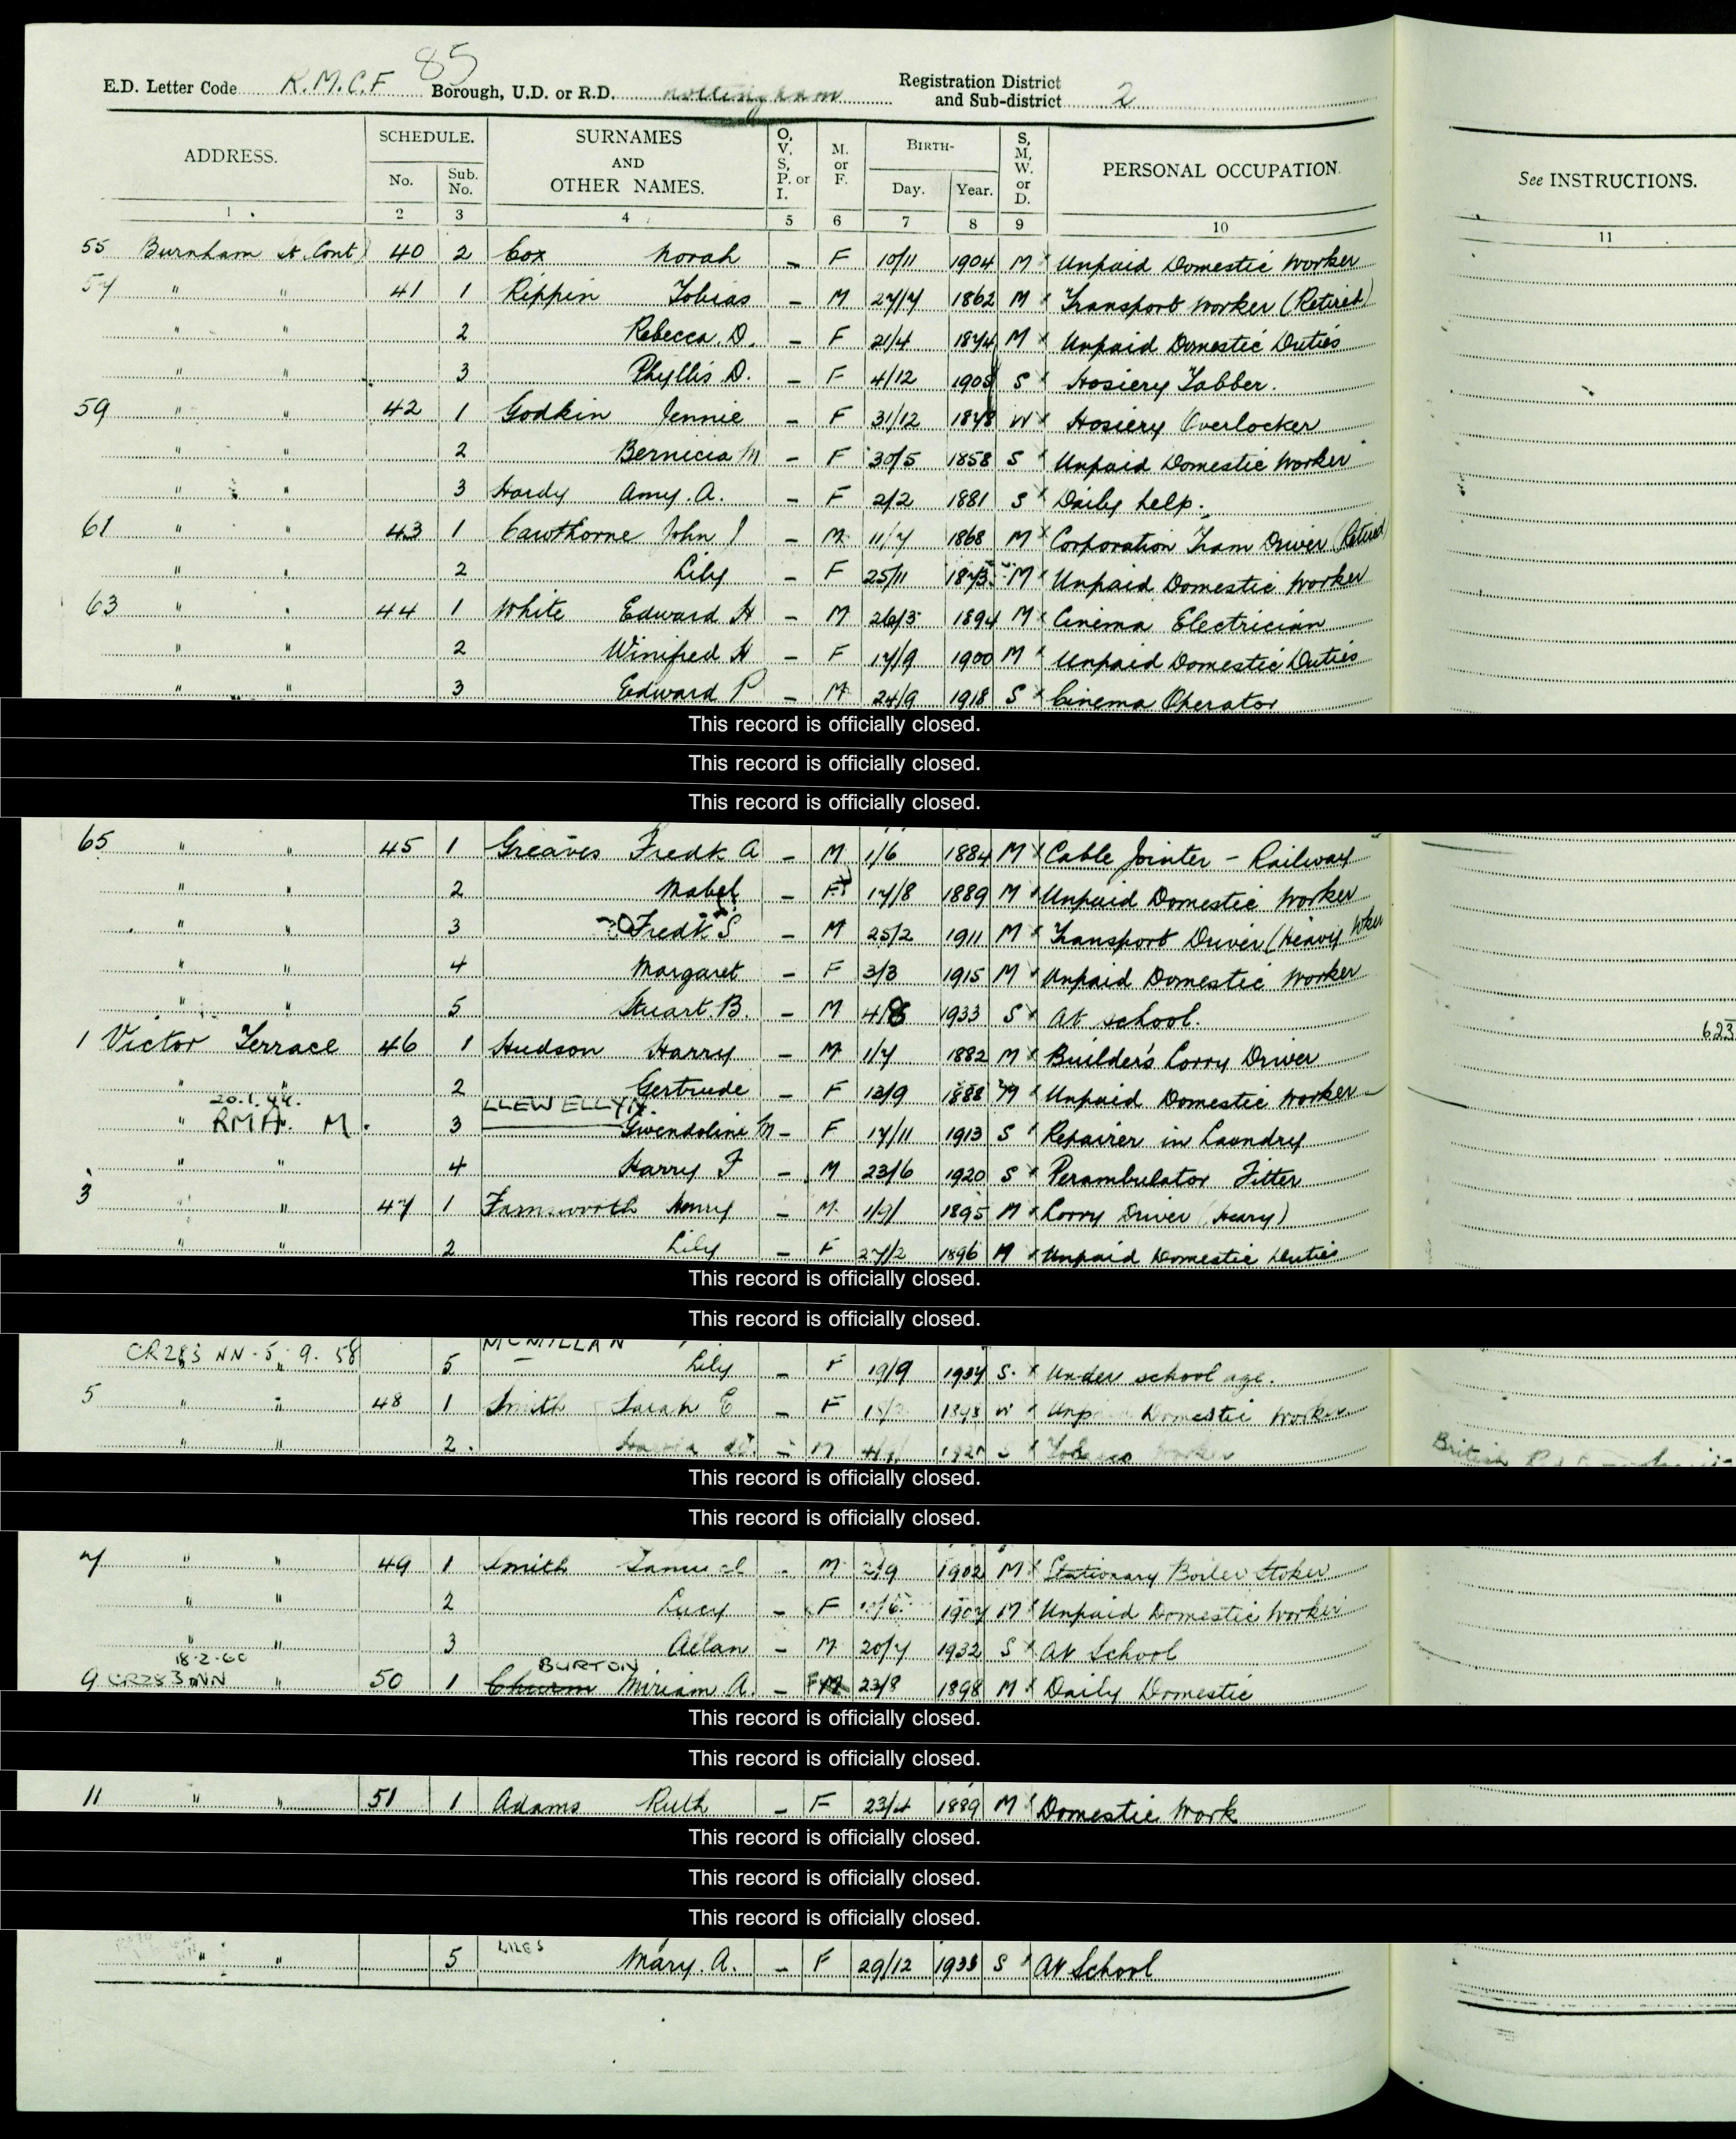 85
E.D. Letter Code R.M.C.F Borough, U.D. or R.D. Nottingham Registration District and Sub-district 2
ADDRESS. SCHEDULE. No. Sub. No. SURNAMES AND OTHER NAMES. O, V, S, P. or I. M. or F. BIRTH- Day. Year. S, M, W. or D. PERSONAL OCCUPATION. See INSTRUCTIONS.
1 2 3 4 5 6 7 8 9 10 11
55 Burnham St. Cont) 40 2 Cox Norah - F 10/11 1904 M Unpaid Domestic Worker
57 " " 41 1 Rippin Tobias - M 27/7 1862 M Transport Worker (Retired)
" " 2 Rebecca. D. - F 21/4 1874 M Unpaid Domestic Duties
" " 3 Phyllis D. - F 4/12 1905 S Hosiery Tabber.
59 " " 42 1 Godkin Jennie - F 31/12 1878 W Hosiery Overlocker
" " 2 Bernicia M - F 30/5 1858 S Unpaid Domestic Worker
" " 3 Hardy Amy. A. - F 2/2 1881 S Daily help.
61 " " 43 1 Cawthorne John J - M 11/7 1868 M Corporation Tram Driver (Retired)
" " 2 Lily - F 25/11 1873 M Unpaid Domestic Worker
63 " " 44 1 White Edward H - M 26/3 1894 M Cinema Electrician
" " 2 Winifred H - F 17/9 1900 M Unpaid Domestic Duties
" " 3 Edward P - M 24/9 1918 S Cinema Operator
This record is officially closed.
This record is officially closed.
This record is officially closed.
65 " " 45 1 Greaves Fredk A - M 1/6 1884 M Cable Jointer - Railway
" " 2 Mabel - F 17/8 1889 M Unpaid Domestic Worker
" " 3 Fredk S - M 25/2 1911 M Transport Driver (Heavy Wker
" " 4 Margaret - F 3/3 1915 M Unpaid Domestic Worker
" " 5 Stuart. B. - M 4/8 1933 S At school.
623
1 Victor Terrace 46 1 Hudson Harry - M 1/7 1882 M Builder's Lorry Driver
" " 2 Gertrude - F 13/9 1888 M Unpaid Domestic Worker
20.1.44. LLEWELLYN.
" RMH. M. 3 Gwendoline M - F 17/11 1913 S Repairer in Laundry
" " 4 Harry F - M 23/6 1920 S Perambulator Fitter
3 " " 47 1 Farnsworth Henry - M 1895 M Lorry Driver (Heavy)
" " 2 Lily - F 27/2 1896 M Unpaid Domestic Duties
This record is officially closed.
This record is officially closed.
MCMILLAN
CR283 NN-5. 9. 58 5 Lily - F 19/9 1934 S. Under school age.
5 " " 48 1 Smith Sarah E - F W Domestic Worker
" " 2. - M Worker British
This record is officially closed.
This record is officially closed.
7 " " 49 1 Smith Samuel - M 1902 M Stationary Boiler Stoker
" " 2 Lucy - F 1904 M Unpaid Domestic Worker
" " 3 Allan - M 20/7 1932 S At School
18-2-60 BURTON
9 CR283 NN " 50 1 Churm Miriam. A. - F 23/8 1898 M Daily Domestic
This record is officially closed.
This record is officially closed.
11 " " 51 1 Adams Ruth - F 23/4 1889 M Domestic Work
This record is officially closed.
This record is officially closed.
This record is officially closed.
LILES
" " 5 Mary. A. - F 29/12 1933 S At School